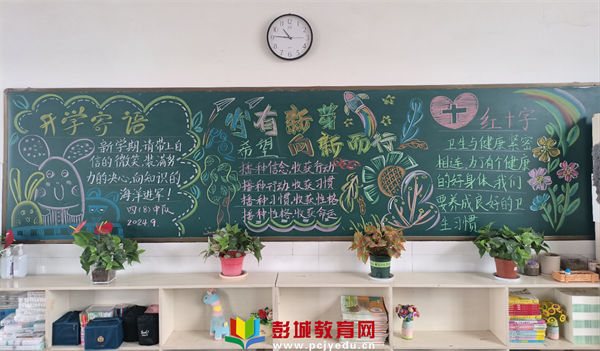 开学寄语
新学期,请带上自
信的微笑,装满努
力的决心,向知识的
海洋进军!
四(8)中队
2024.9.
心有新芽
希望 向新而行
播种信念,收获行动
播种行动,收获习惯
播种习惯,收获性格
播种性格,收获命运
红十字
卫生与健康紧密
相连,为了有个健康
的好身体,我们
要养成良好的卫
生习惯
彭城教育网
www.pcjyedu.cn